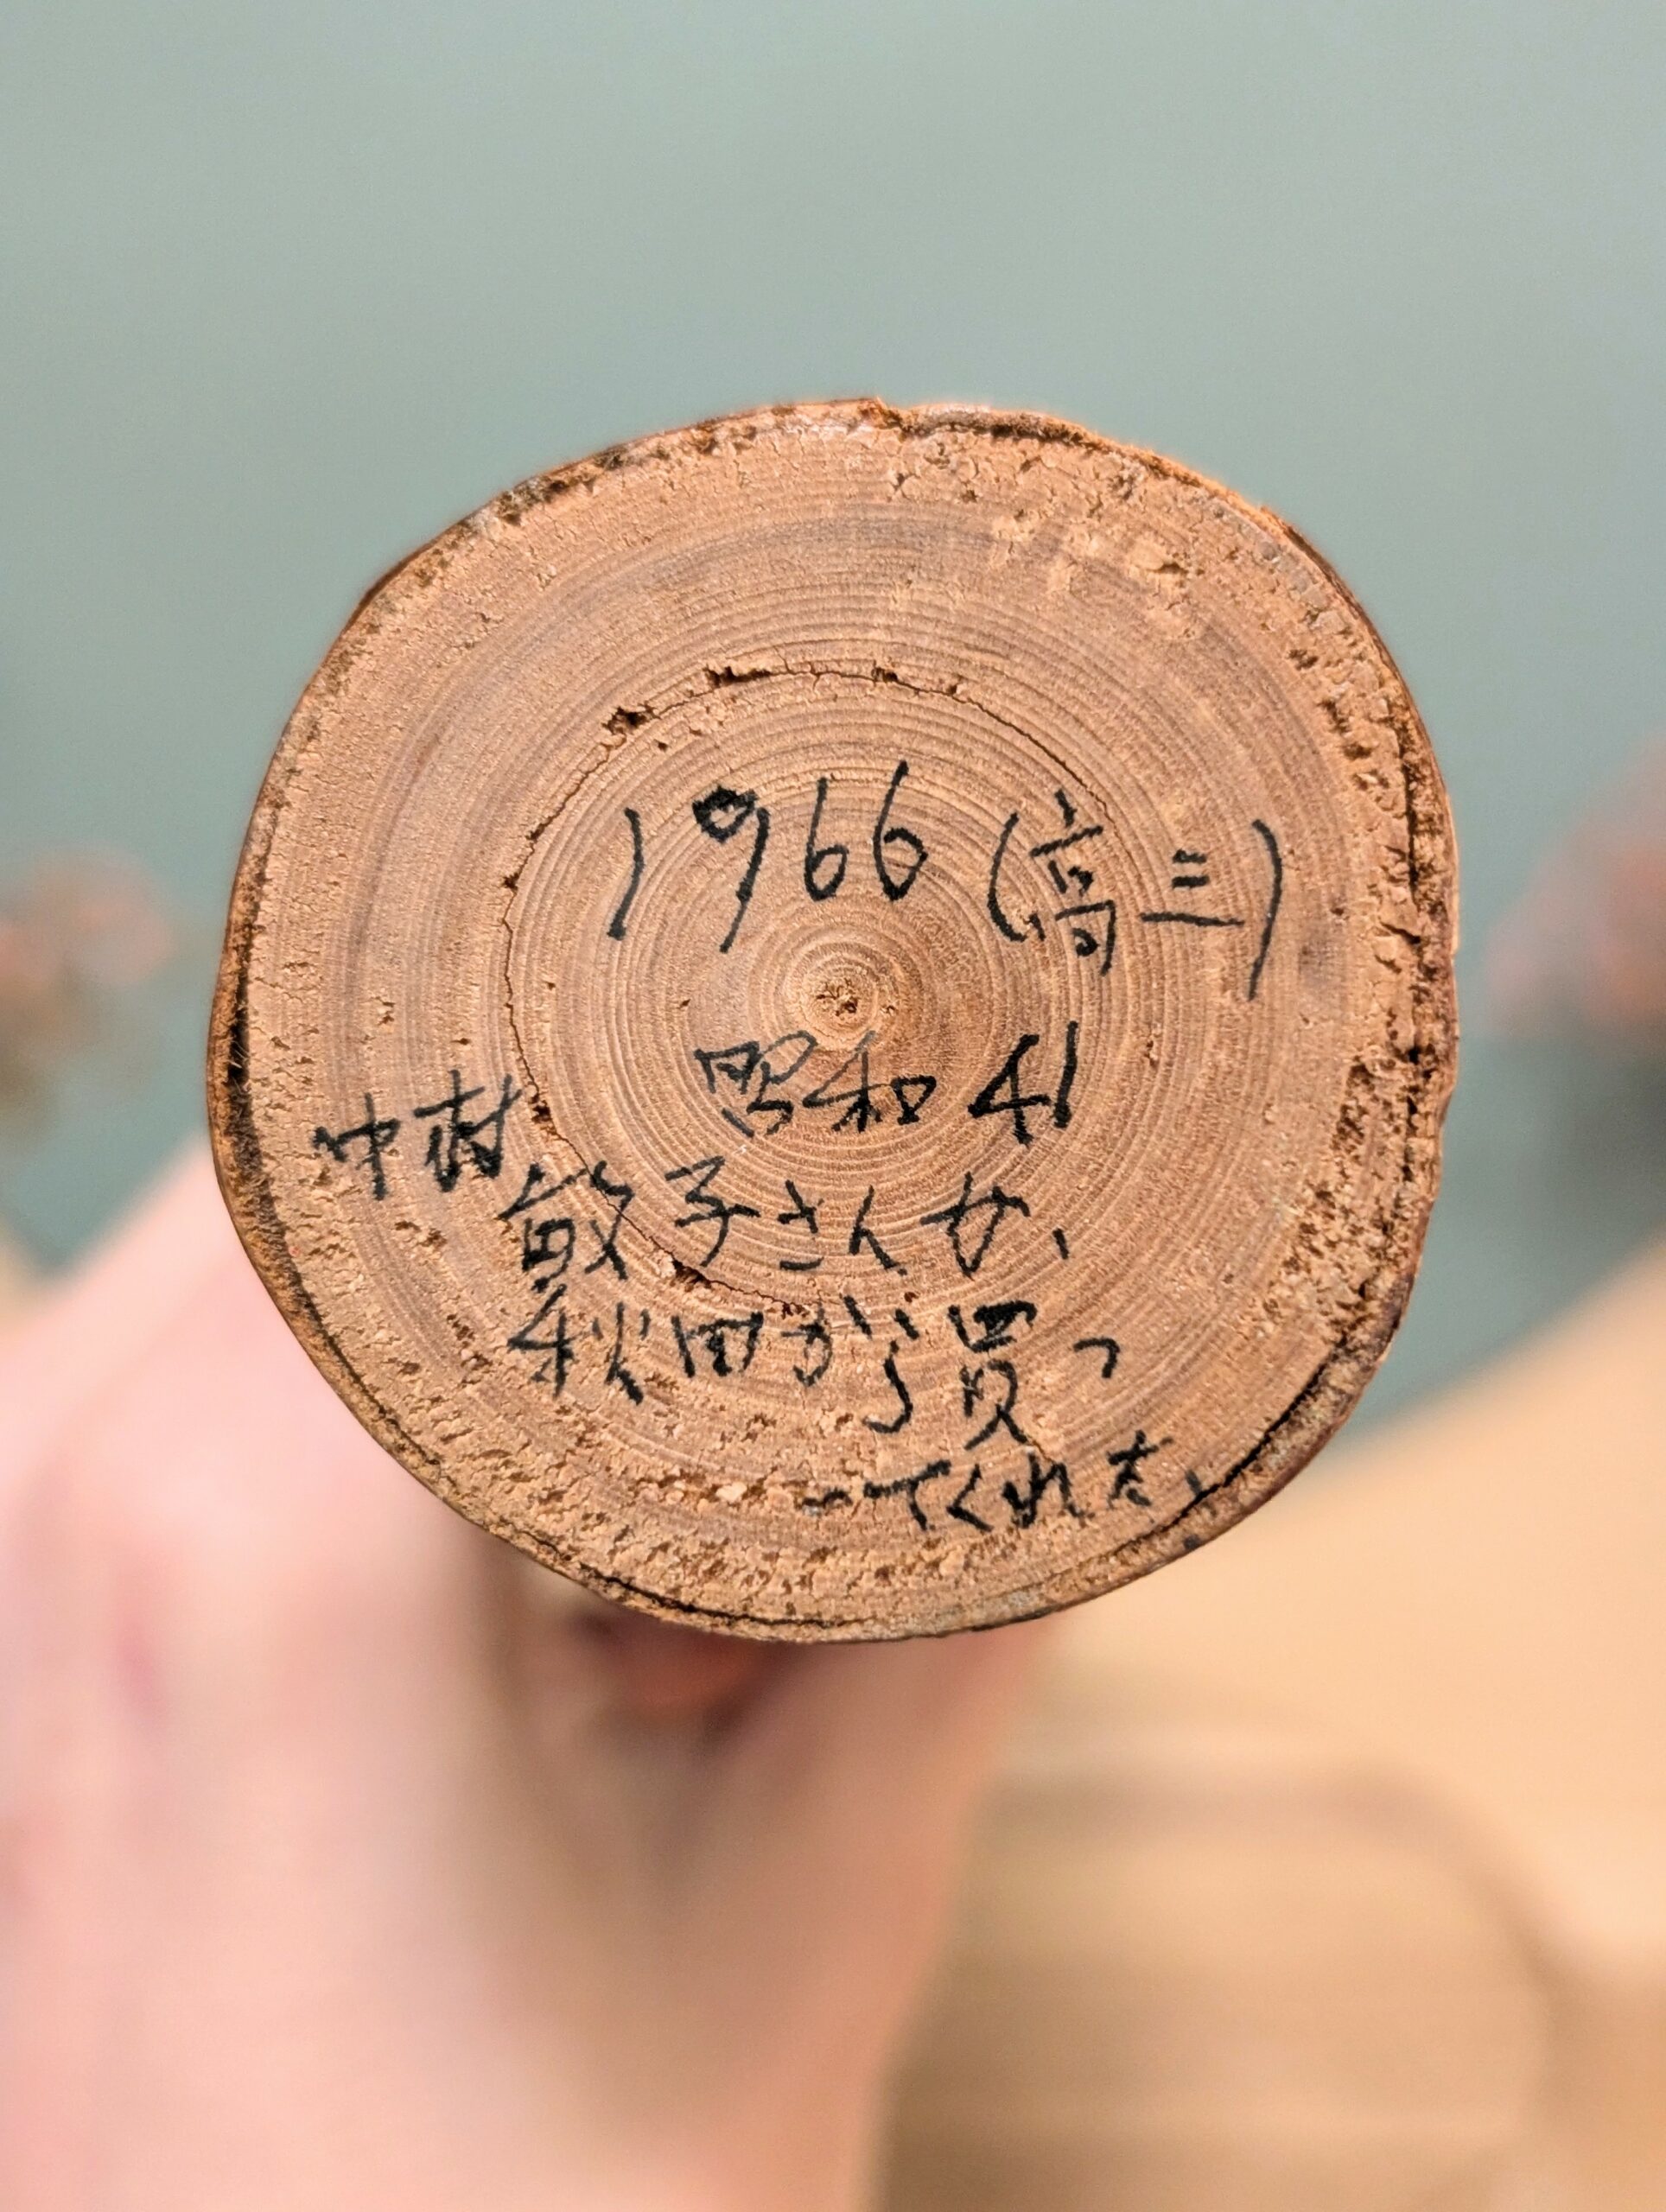 1966(高三)
昭和41
中村
敏子さんが、
秋田から買っ
てくれた、